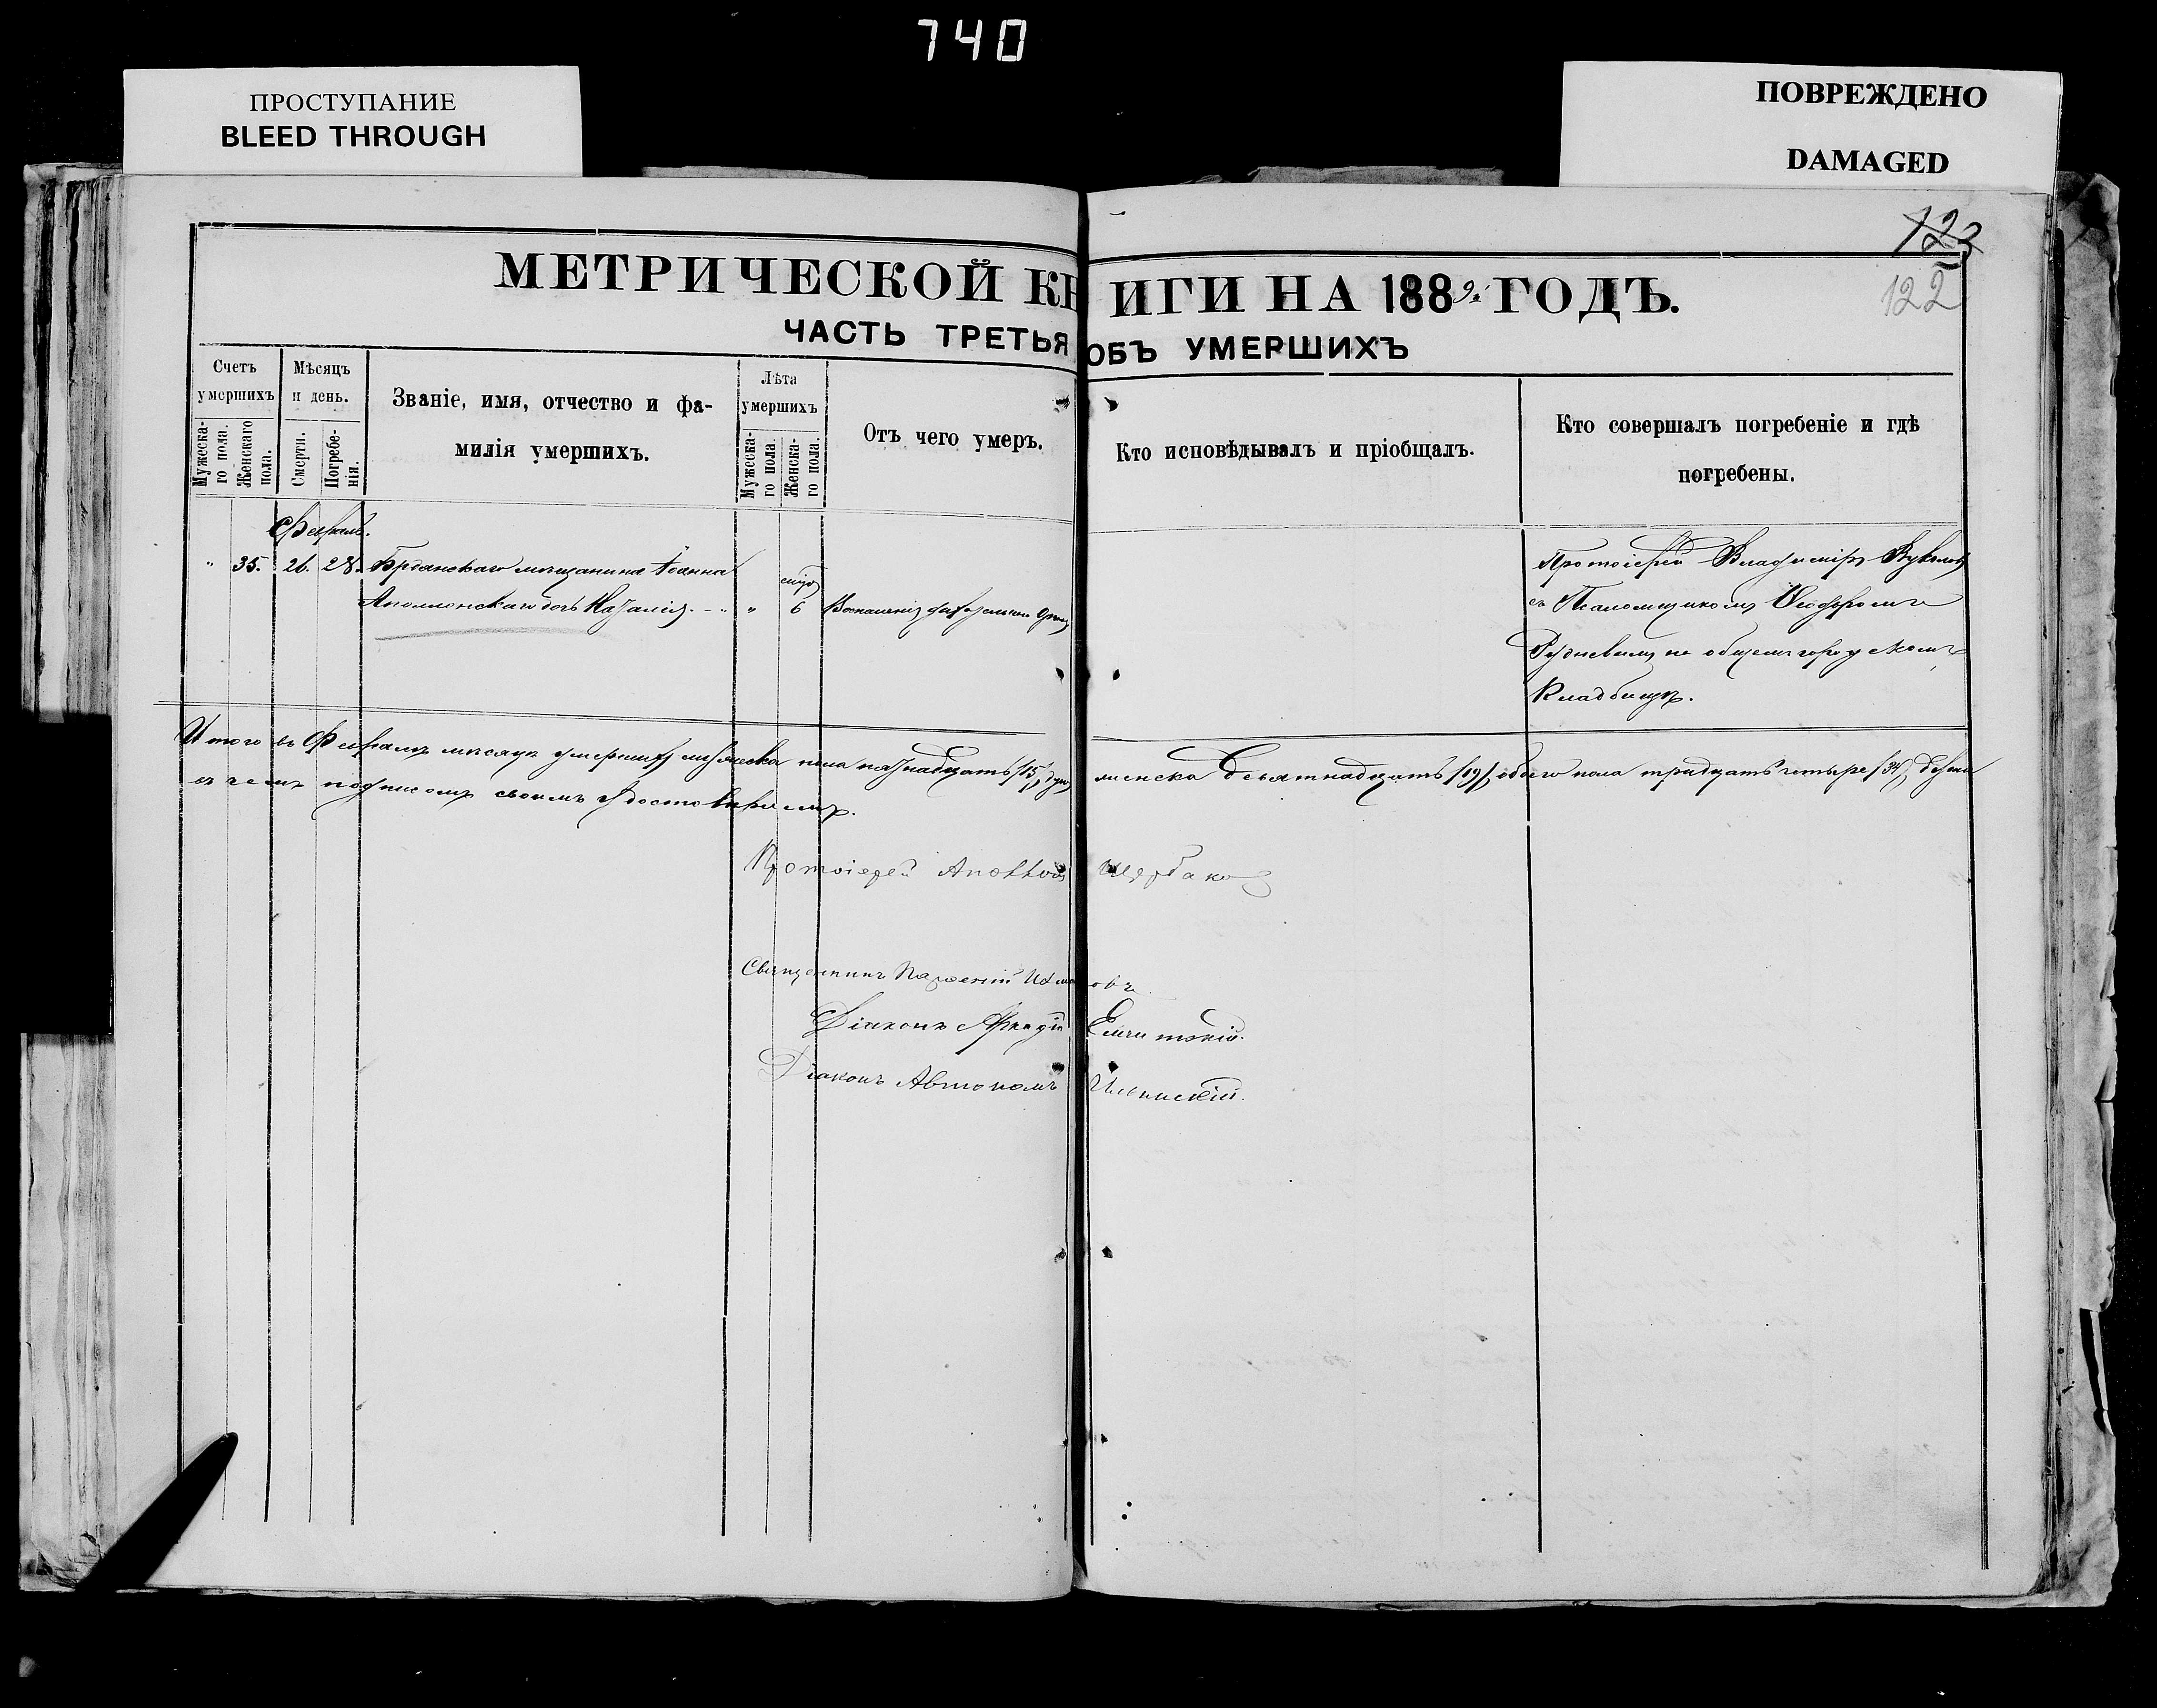 740
ПРОСТУПАНИЕ
BLEED THROUGH
ПОВРЕЖДЕНО
DAMAGED
123
122
МЕТРИЧЕСКОЙ КНИГИ НА 1889й ГОДЪ.
ЧАСТЬ ТРЕТЬЯ ОБЪ УМЕРШИХЪ
Счетъ умершихъ
Мужеска-го пола.
Женскаго пола.
Мѣсяцъ и день.
Смерти.
Погребе-нія.
Званіе, имя, отчество и фа-
милія умершихъ.
Лѣта умершихъ
Мужеска-го пола.
Женска-го пола.
Отъ чего умеръ.
Кто исповѣдывалъ и пріобщалъ.
Кто совершалъ погребеніе и гдѣ
погребены.
Февраль.
" 35. 26. 28. Бердянскаго мѣщанина Іоанна
дочь Наталія. " 6 Воспаленія дыхательн.
Протоіерей Владиміръ
съ Псаломщикомъ Ѳеодоромъ
Рудневымъ на общемъ городскомъ
Кладбищѣ.
Итого въ Февралѣ мѣсяцѣ умершихъ мужеска пола пятнадцать /15/, женска девятнадцать /19/, обоего пола тридцать четыре /34/,
въ чемъ подписомъ своимъ удостовѣряемъ.
Протоіерей Щербаков
Священникъ Парѳеній
Діаконъ Аркадій
Діаконъ Автономъ Ильинскій.